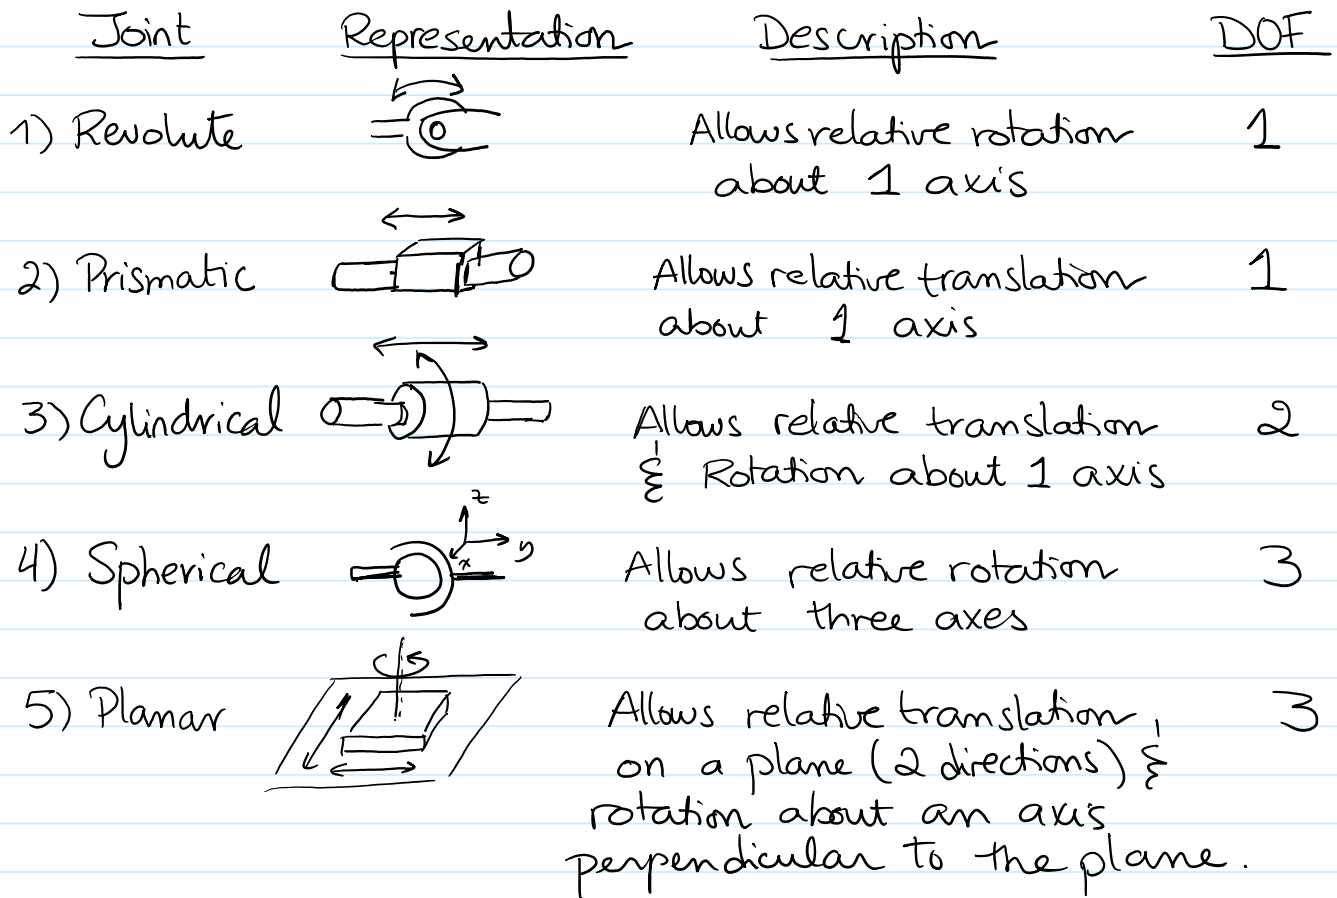 Joint Representation Description DOF
1) Revolute Allows relative rotation 1
about 1 axis
2) Prismatic Allows relative translation 1
about 1 axis
3) Cylindrical Allows relative translation 2
& Rotation about 1 axis
z
y
x
4) Spherical Allows relative rotation 3
about three axes
5) Planar Allows relative translation 3
on a plane (2 directions) &
rotation about an axis
perpendicular to the plane.